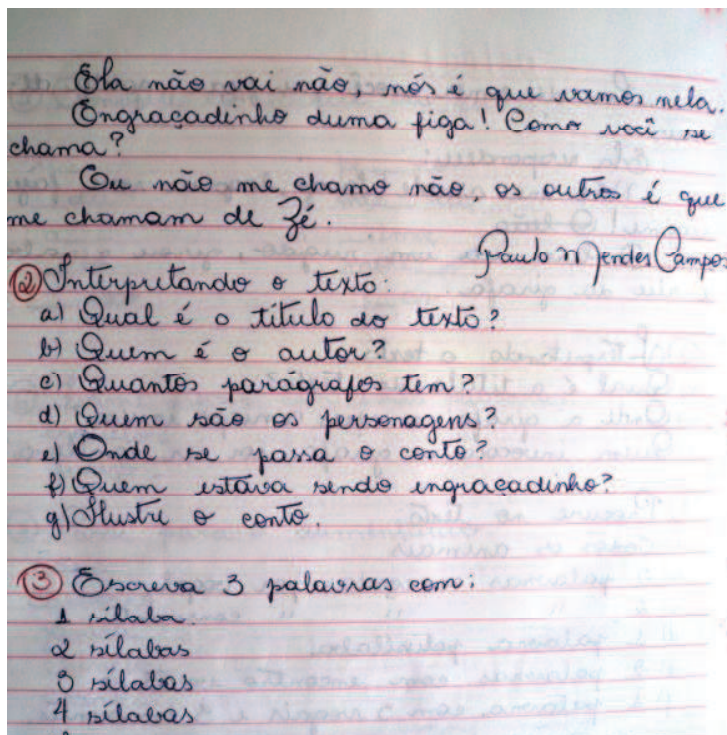 Ela não vai não, nós é que vamos nela.
Engraçadinho duma figa! Como você se
chama?
Eu não me chamo não, os outros é que
me chamam de Zé.
Paulo Mendes Campos
② Interpretando o texto:
a) Qual é o título do texto?
b) Quem é o autor?
c) Quantos parágrafos tem?
d) Quem são os personagens?
e) Onde se passa o conto?
f) Quem estava sendo engraçadinho?
g) Ilustre o conto.
③ Escreva 3 palavras com:
1 sílaba
2 sílabas
3 sílabas
4 sílabas